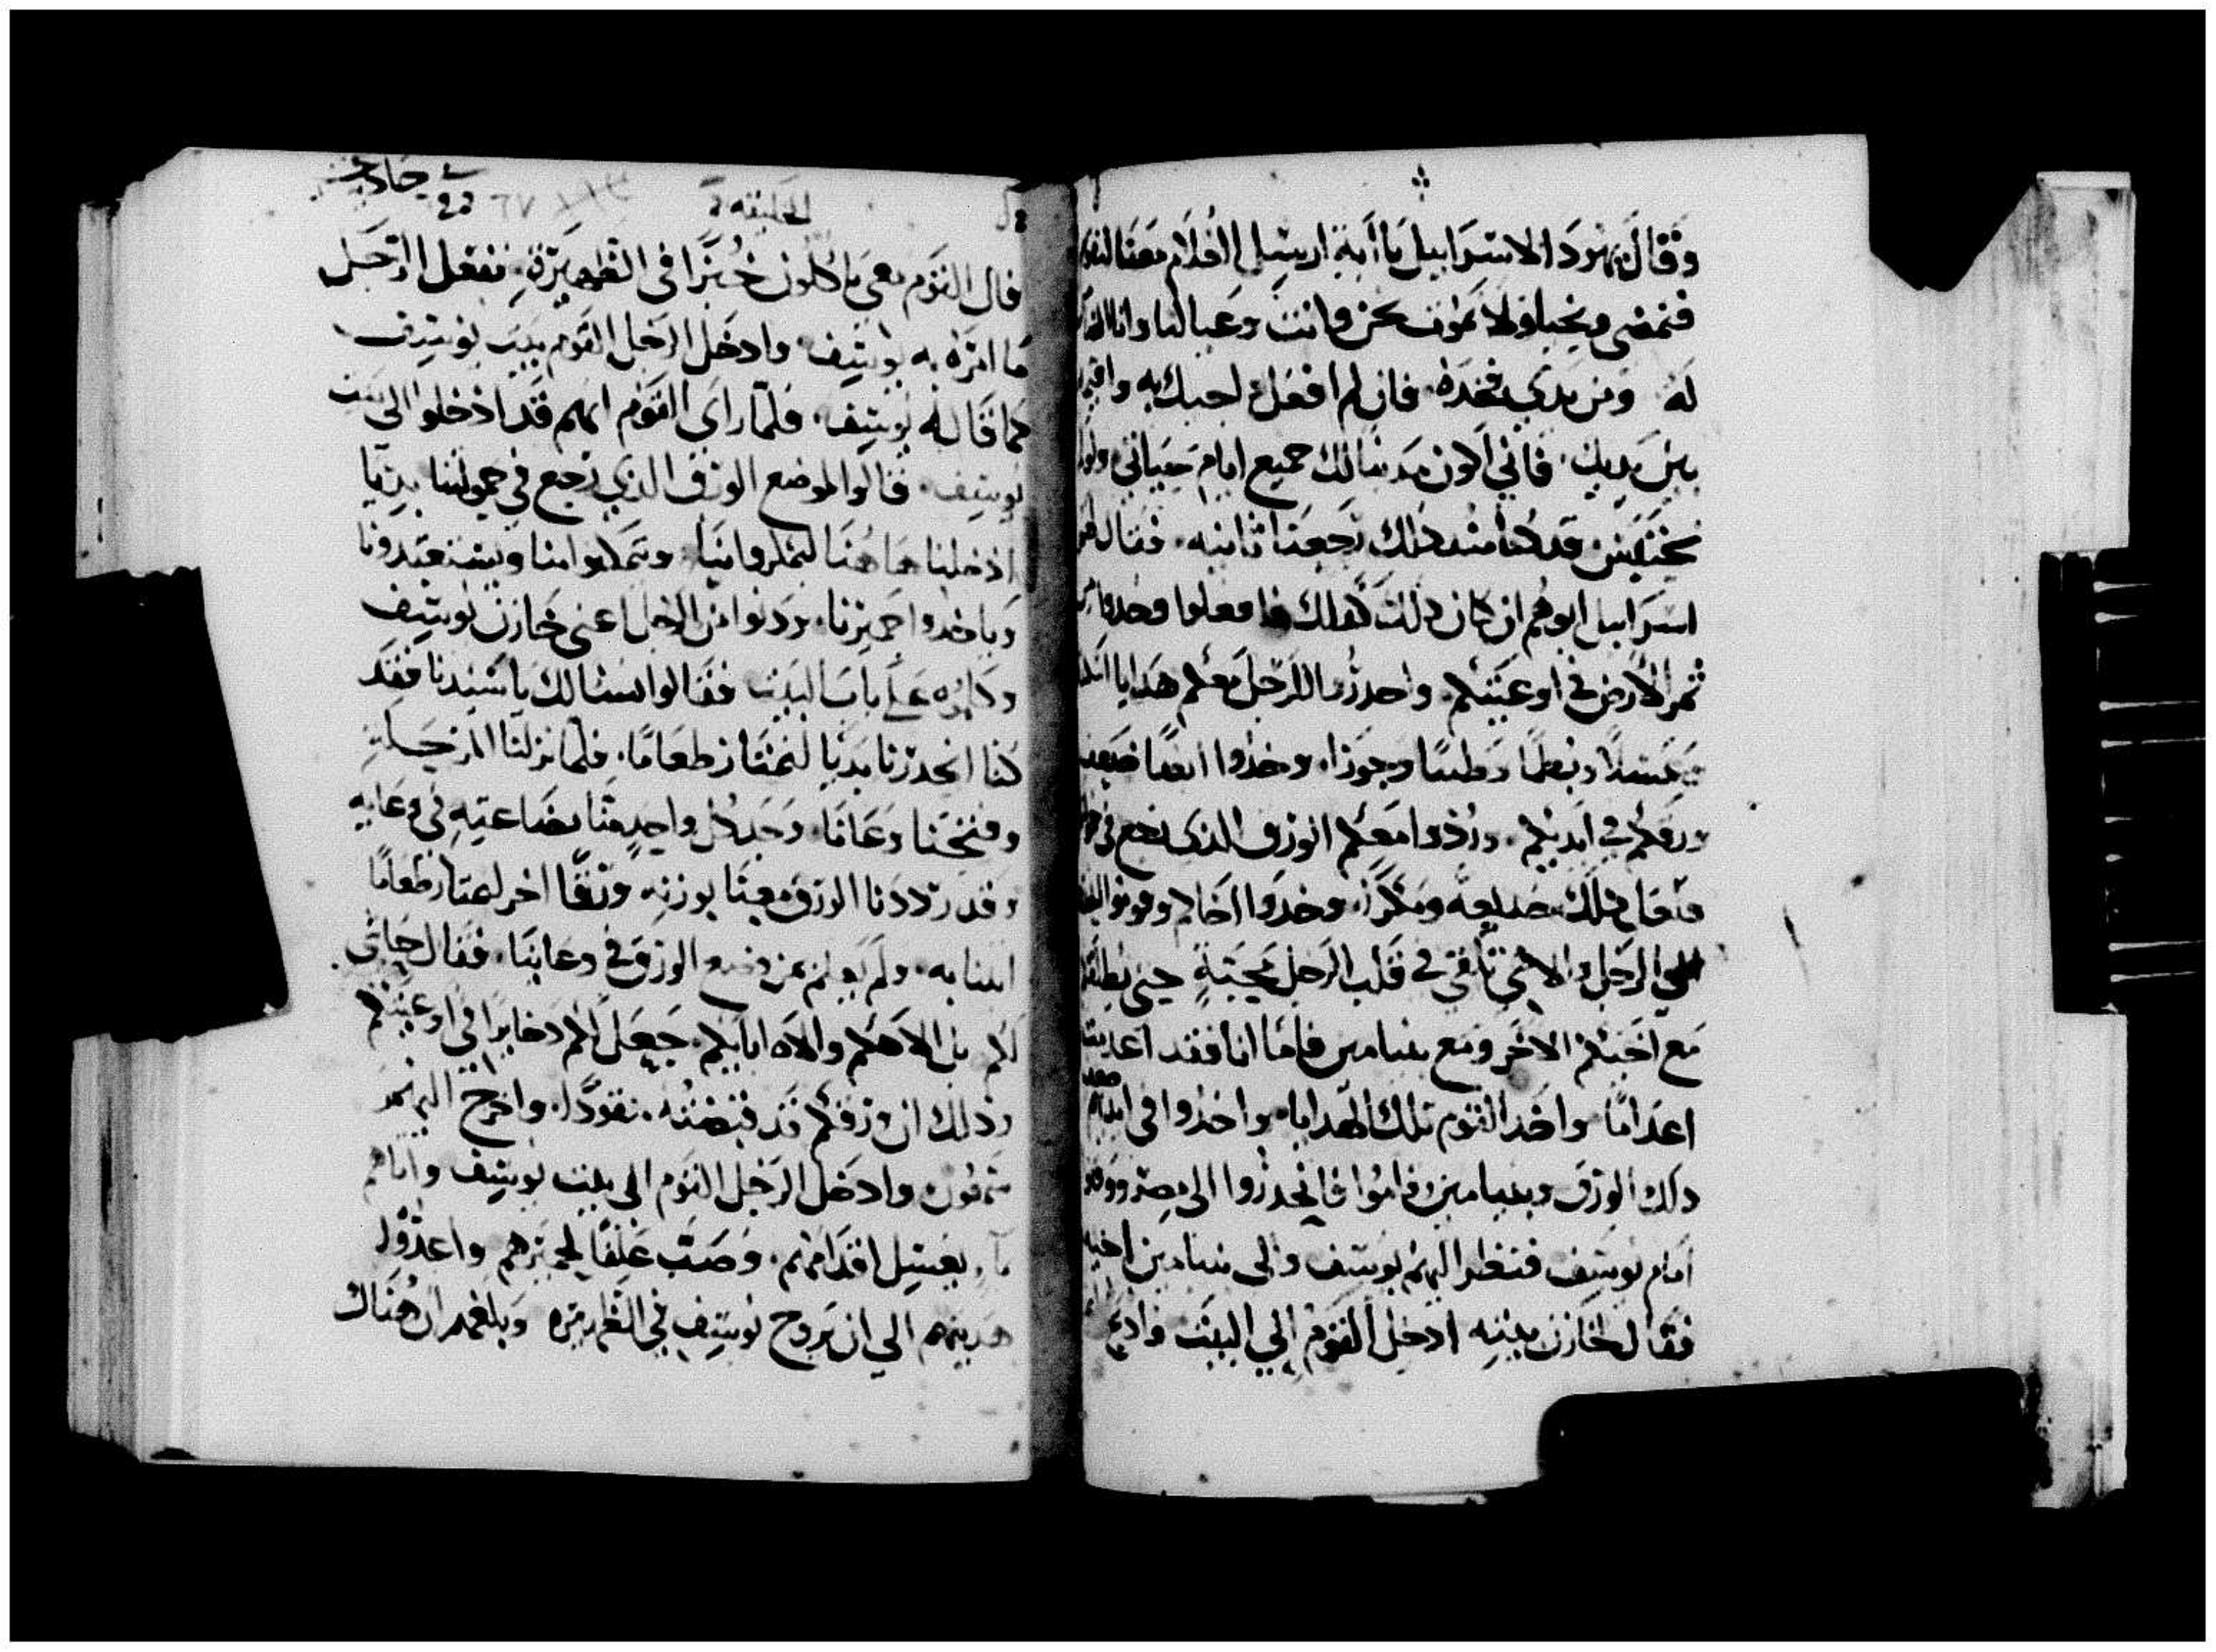 وقال يهودا لاسراييل يا ابه ارسل الغلام معنا لنقوم
فنمضي ونحيا ولا نموت نحن وانت وعيالنا وانا
له ومن يدي فخذه فان لم افعل اجيك به
بين يديك فاني اكون مدنبا لك جميع ايام حياتي ولولا
قد كنا منذ ذلك رجعنا ثانيه فقال لهم
اسراييل ابوهم ان كان ذلك كذلك فافعلوا وخذوا من
ثمر الارض في اوعيتكم واحدروا للرجل معكم هدايا
عسلا وبطما وجوزا وخذوا ايضا ضعف
ورقكم في ايديكم وردوا معكم الورق الذي رجع في
وخذوا اخاكم وقوموا
الى الرجل والاهي يلقي في قلب الرجل محبة حتى يطلق
مع اخيكم الاخر ومع بنيامين فاما انا فقد اعدمت
اعداما واخذ القوم تلك الهدايا واخذوا في ايديهم ضعف
ذلك الورق وبنيامين وقاموا فانحدروا الى مصر ووقفوا
امام يوسف فنظر اليهم يوسف والى بنيامين اخيه
فقال لخازن بيته ادخل القوم الي البيت واذبح
الخليقة
فان القوم معي ياكلون خبزا في الظهيرة ففعل الرجل
ما امره به يوسف وادخل الرجل القوم بيت يوسف
كما قال له يوسف فلما راي القوم انهم قد ادخلوا الي بيت
يوسف قالوا لموضع الورق الذي رجع في حمولتنا بديا
ادخلنا هاهنا ليمكروا بنا ويستعبدونا
وياخذوا حميرنا ودنوا من الرجل اعني خازن يوسف
وكلموه علي باب البيت فقالوا نسالك يا سيدنا فقد
كنا انحدرنا بديا لنمتار طعاما فلما نزلنا المرحلة
وفتحنا وعانا وجد كل واحد منا بضاعته في وعايه
وقد رددنا الورق معنا بوزنه وورقا اخر لنمتار طعاما
اتينا به ولم نعلم من وضع الورق في وعاينا فقال حاشى
لكم بل الاهكم والاه ابايكم جعل لكم دخايرا في اوعيتكم
وذلك ان ورقكم قد قبضته نقودا واخرج اليهم
شمعون وادخل الرجل القوم الى بيت يوسف واتاهم
بغسل اقدامهم وصب علفا لحميرهم واعدوا
هديتهم الي ان يروح يوسف في الظهيرة وبلغهم ان هناك